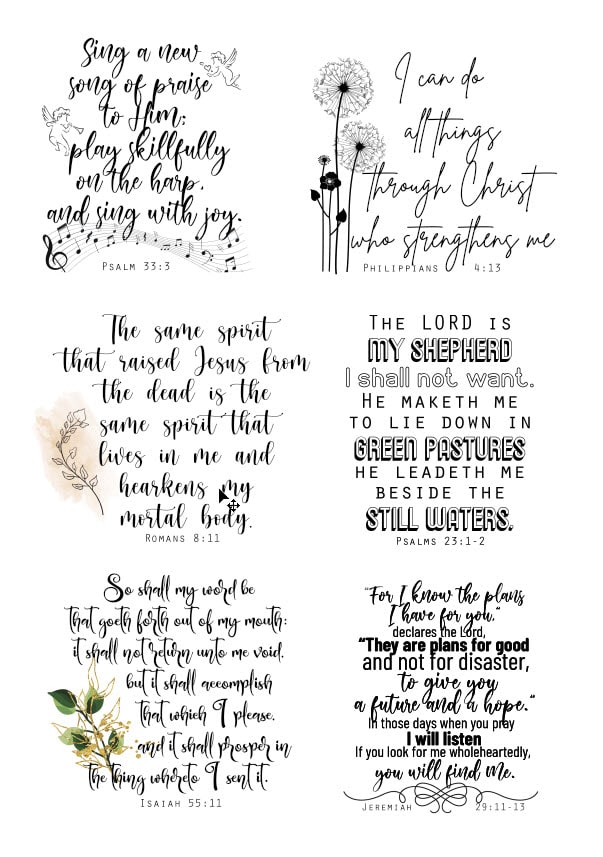 Sing a new
song of praise
to Him;
play skillfully
on the harp,
and sing with joy.
Psalm 33:3
I can do
all things
through Christ
who strengthens me
Philippians 4:13
The same spirit
that raised Jesus from
the dead is the
same spirit that
lives in me and
hearkens my
mortal body.
Romans 8:11
The LORD is
MY SHEPHERD
I shall not want.
He maketh me
to lie down in
GREEN PASTURES
he leadeth me
beside the
STILL WATERS.
Psalms 23:1-2
So shall my word be
that goeth forth out of my mouth:
it shall not return unto me void,
but it shall accomplish
that which I please,
and it shall prosper in
the thing whereto I sent it.
Isaiah 55:11
"For I know the plans
I have for you,"
declares the Lord,
"They are plans for good
and not for disaster,
to give you
a future and a hope."
In those days when you pray
I will listen
If you look for me wholeheartedly,
you will find me.
Jeremiah 29:11-13